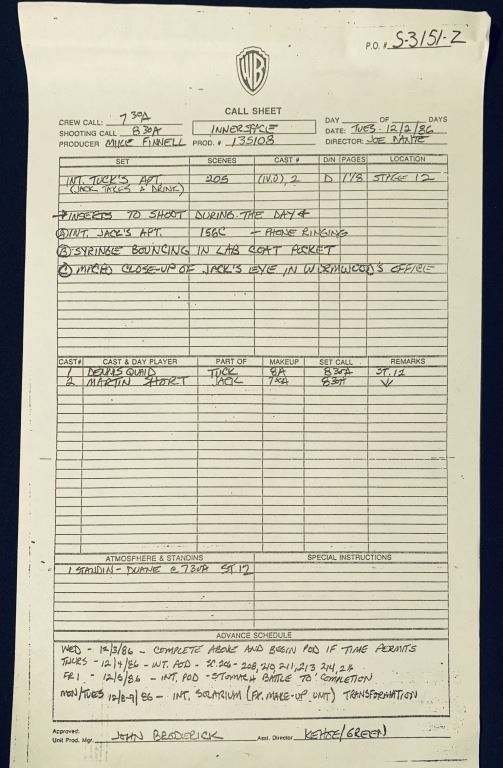 P.O. # S-3151-Z
WB
CALL SHEET
CREW CALL: 7 30A
SHOOTING CALL 8 30A
PRODUCER MIKE FINNELL
INNERSPACE
PROD. # 135108
DAY OF DAYS
DATE: TUES - 12/2/86
DIRECTOR: JOE DANTE
SET SCENES CAST # D/N PAGES LOCATION
INT. TUCK'S APT. 205 (1V.O), 2 D 1 1/8 STAGE 12
(JACK TAKES A DRINK)
INSERTS TO SHOOT DURING THE DAY
(A) INT. JACK'S APT. 156C - PHONE RINGING
(B) SYRINGE BOUNCING IN LAB COAT POCKET
(C) CLOSE-UP OF JACK'S EYE IN WORMWOOD'S OFFICE
CAST# CAST & DAY PLAYER PART OF MAKEUP SET CALL REMARKS
1 DENNIS QUAID TUCK 8A 8 30A ST. 12
2 MARTIN SHORT JACK 8 30A
ATMOSPHERE & STANDINS SPECIAL INSTRUCTIONS
1 STANDIN - DUANE @ 7 30A ST 12
ADVANCE SCHEDULE
WED - 12/3/86 - COMPLETE ABOVE AND BEGIN POD IF TIME PERMITS
THURS - 12/4/86 - INT. POD - SC. 208, 210, 211, 213, 214,
FRI - 12/5/86 - INT. POD - STOMACH BATTLE TO COMPLETION
MON/TUES 12/8-9/86 - INT. SOLARIUM (FX. MAKE-UP UNIT) TRANSFORMATION
Approved:
Unit Prod. Mgr. JOHN BRODERICK Asst. Director KEHOE/GREEN